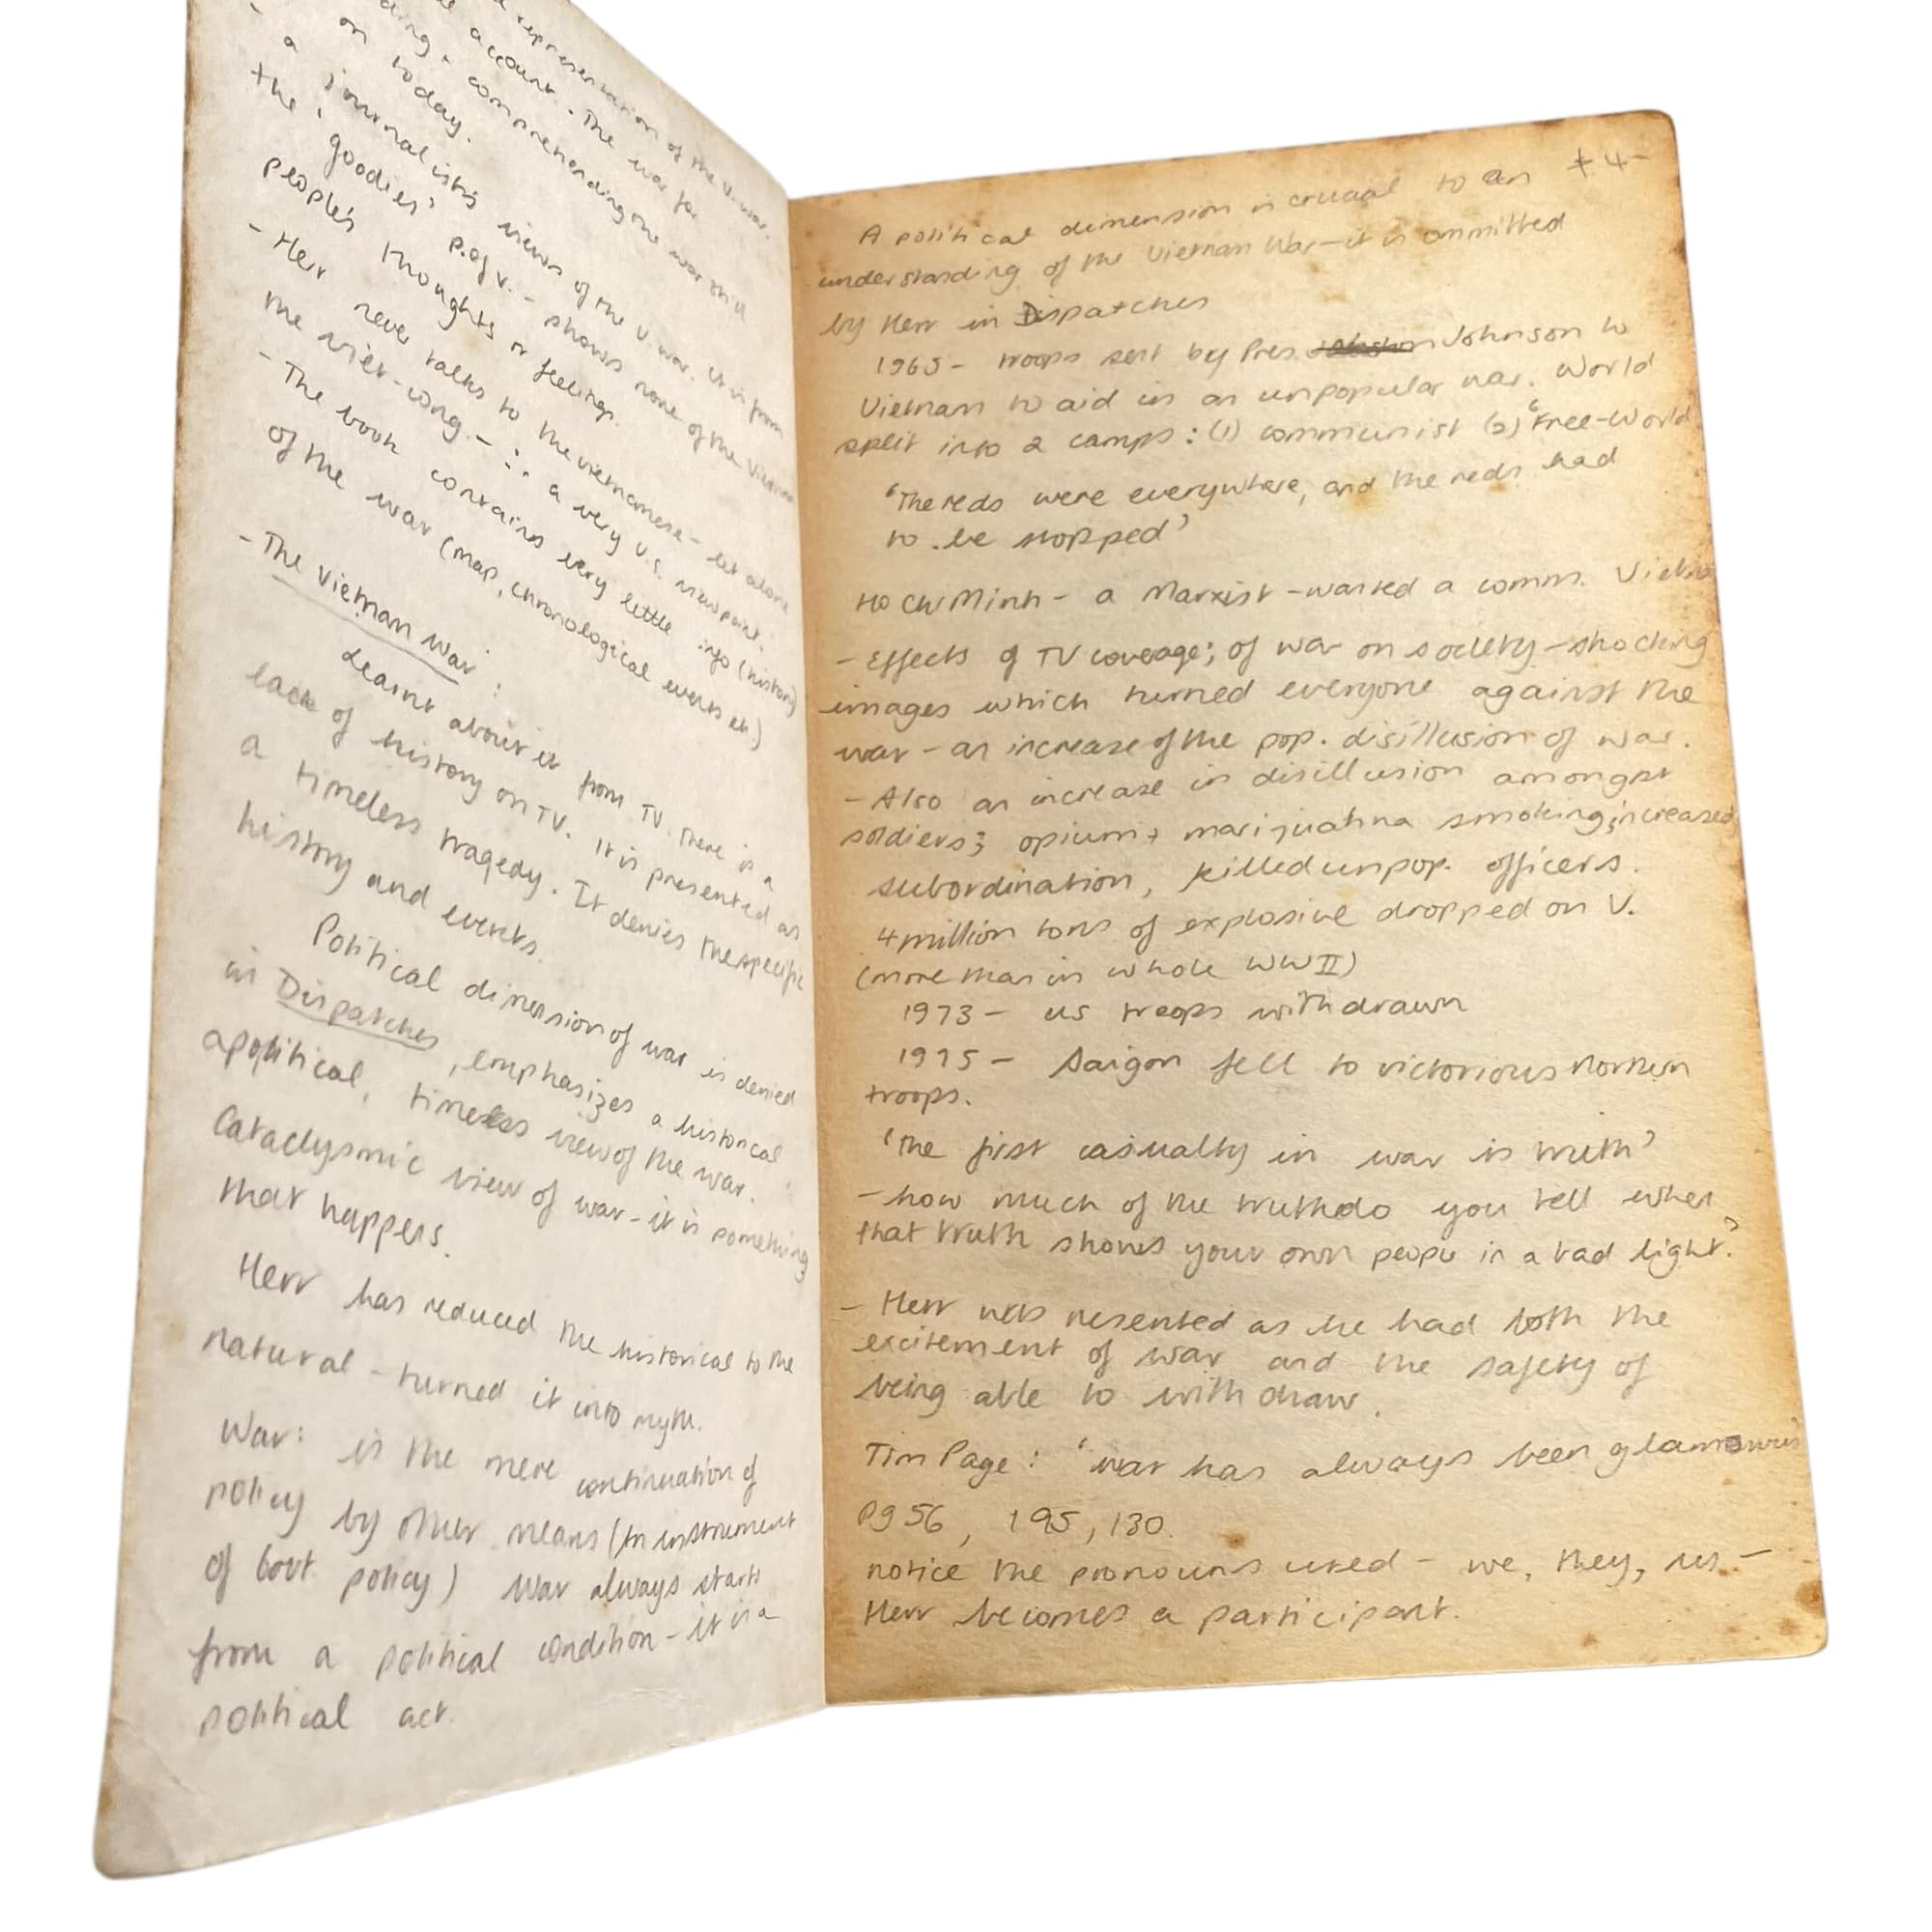 representation of the V. war.
account. The war for
comprehending the war on a
on today.
- a journalist's views of the V. war. It is from
the 'goodies' p.of v. - shows none of the Vietnam
people's thoughts or feelings.
- Herr never talks to the vietnamese - let alone
the viet-cong - ∴ a very U.S. viewpoint.
- The book contains very little info (history)
of the war (map, chronological events etc.)
- The Vietnam War :
Learnt about it from TV. There is a
lack of history on TV. It is presented as
a timeless tragedy. It denies the specific
history and events.
Political dimension of war is denied
in Dispatches, emphasizes a historical
apolitical, timeless view of the war.
Cataclysmic view of war - it is something
that happens.
Herr has reduced the historical to the
natural - turned it into myth.
War: is the mere continuation of
policy by other means (An instrument
of Govt. policy) War always starts
from a political condition - it is a
political act.
A political dimension is crucial to an $4-
understanding of the Vietnam War - it is ommitted
by Herr in Dispatches
1965 - troops sent by Pres. Johnson to
Vietnam to aid in an unpopular war. World
split into 2 camps: (1) communist (2) 'Free-World
'The reds were everywhere, and the reds had
to be stopped'
Ho Chi Minh - a Marxist - wanted a comm.
- Effects of TV coverage; of war on society - shocking
images which turned everyone against the
war - an increase of the pop. disillusion of war.
- Also an increase in disillusion amongst
soldiers; opium + marijuahna smoking; increased
subordination, killed unpop. officers.
4 million tons of explosive dropped on V.
(more than in whole WW II)
1973 - US troops withdrawn
1975 - Saigon fell to victorious northern
troops.
'The first casualty in war is truth'
- how much of the truth do you tell when
that truth shows your own people in a bad light?
- Herr was resented as he had both the
excitement of war and the safety of
being able to withdraw.
Tim Page: 'War has always been glamourous'
pg 56, 195, 130.
notice the pronouns used - we, they, us -
Herr becomes a participant.